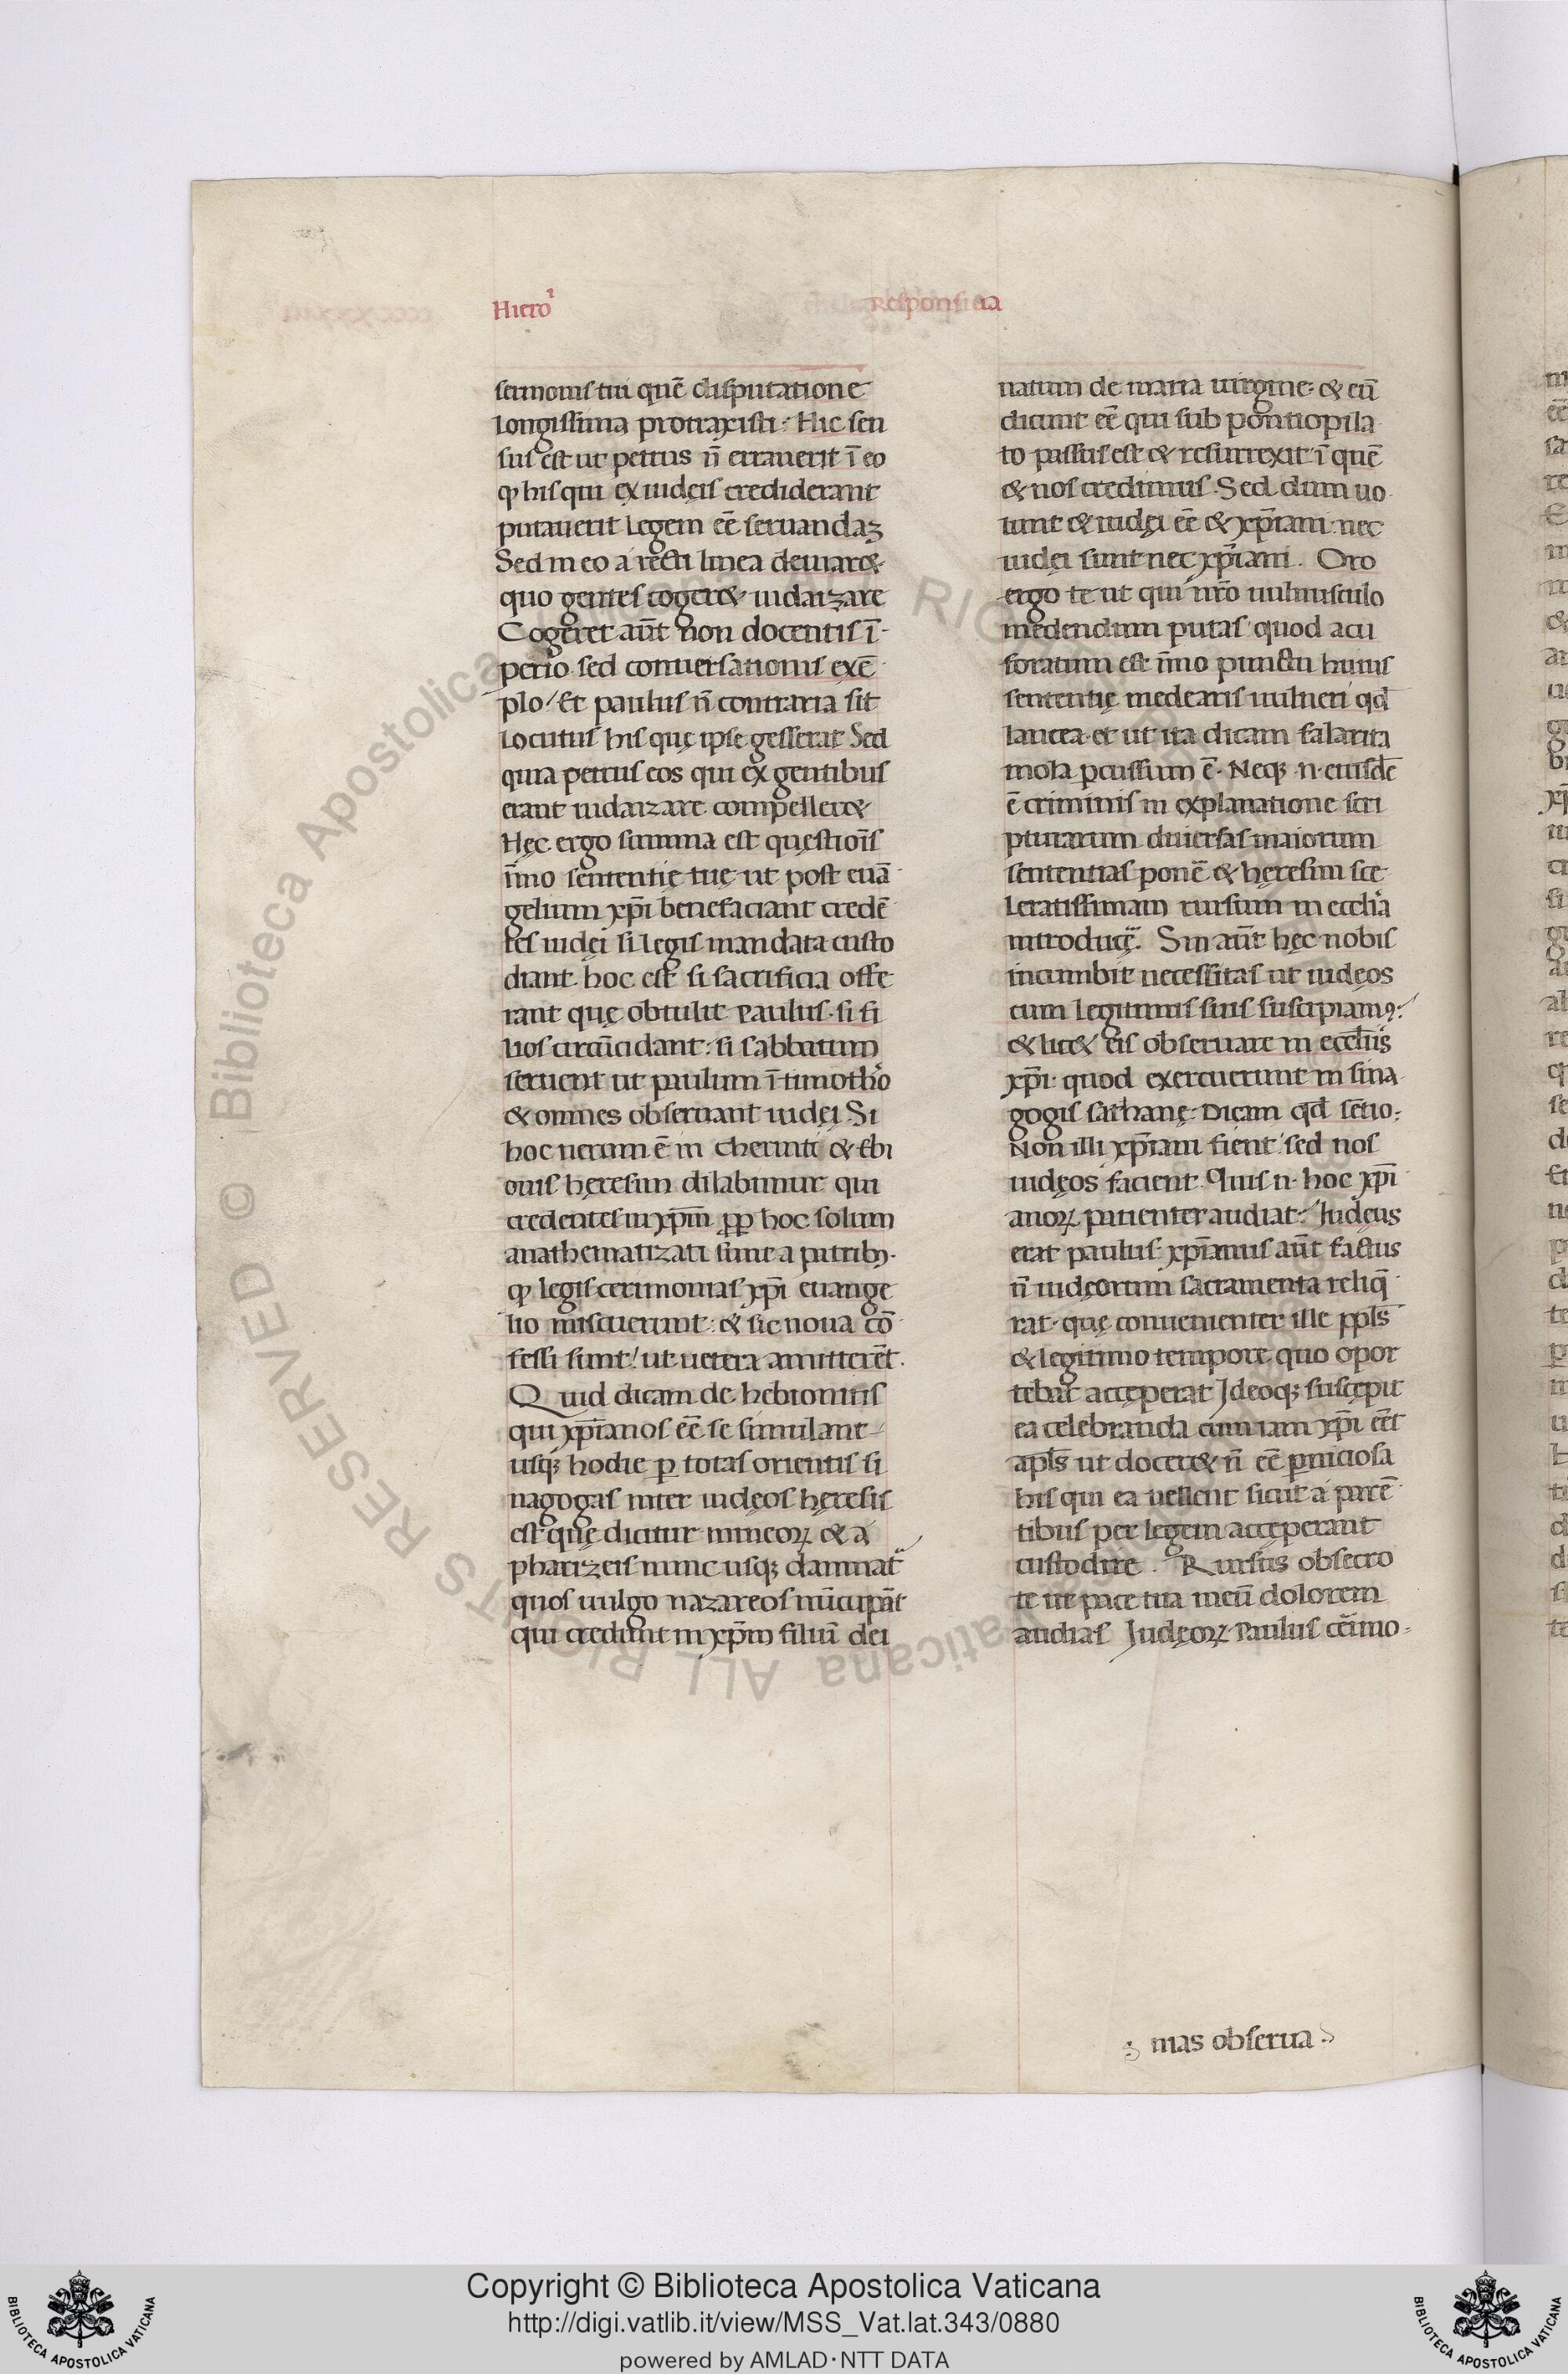 Hiero
Responsiua
sermonis tui quē disputatione
longissima protraxisti: Hic sen
sus est ut petrus n̄ errauerit ī eo
ꝙ his qui ex iudęis crediderant
putauerit legem eē seruandaꝫ
Sed in eo a recti linea deuiar&
quo gentes coger& iudaizare
Cogeret aūt non docentis ī
perio sed conuersationis exē
plo / Et paulus n̄ contraria sit
locutus his quę ipse gesserat Sed
quia petrus eos qui ex gentibus
erant iudaizare compeller&
Hęc ergo summa est questiōis
īmo sententię tuę ut post euā
gelium xp̄i benefaciant credē
tes iudęi si legis mandata custo
diant. hoc est si sacrificia offe
rant quę obtulit Paulus. si fi
lios circūcidant: si sabbatum
seruent ut paulum ī timotho
& omnes obseruant iudęi. Si
hoc uerum ē in cherinti & ebi
onis heresim dilabimur qui
credentes in xp̄m ꝓp hoc solum
anathematizati sunt a patribꝫ.
ꝙ legis cerimonias xp̄i euange
lio miscuerunt: & sic noua cō
fessi sunt! ut uetera amitterēt.
Quid dicam de hebionitis
qui xp̄ianos eē se simulant
usqꝫ hodie ꝑ totas orientis si
nagogas inter iudęos hęresis
est quę dicitur mineoꝝ & a
pharizeis nunc usqꝫ damnat̄
quos uulgo nazareos nūcupāt
qui credunt in xp̄m filiū dei
natum de maria uirgine: & eū
dicunt eē qui sub pontiopila
to passus est & resurrexit ī quē
& nos credimus. Sed dum uo
lunt & iudęi eē & xp̄iani: nec
iudęi sunt nec xp̄iani. Oro
ergo te ut qui nr̄o uulnusculo
medendum putas quod acu
foratum est īmo punctu huius
sententię medearis uulneri qd̄
lancea et ut ita dicam falarita
mola ꝑcussum ē. Neqꝫ .n. eiusdē
ē criminis in explanatione scri
pturarum diuersas maiorum
sententias ponē & hęresim sce
leratissimam rursum in ecclia
introducę̄. Sin aūt hęc nobis
incumbit necessitas ut iudęos
cum legitimis suis suscipiamꝰ:
& lic& eis obseruare in eccliis
xp̄i quod exercuerunt in sina
gogis sathanę. Dicam qd̄ sētio:
Non illi xp̄iani fient sed nos
iudęos facient. Quis .n. hoc xp̄i
anoꝝ patienter audiat: Iudęus
erat paulus: xp̄ianus aūt factus
n̄ iudęorum sacramenta reliq̄
rat. quę conuenienter ille ppls̄
& legitimo tempore quo opor
tebat accęperat Ideoqꝫ suscępit
ea celebranda cum iam xp̄i eēt
apls̄ ut docer& n̄ eē ꝑniciosa
his qui ea uellent sicut a parē
tibus per legem accęperant
custodire. Rursus obsecro
te ut pace tua meū dolorem
audias Iudęoꝝ Paulus cēimo
mas obserua
Copyright © Biblioteca Apostolica Vaticana
http://digi.vatlib.it/view/MSS_Vat.lat.343/0880
powered by AMLAD·NTT DATA